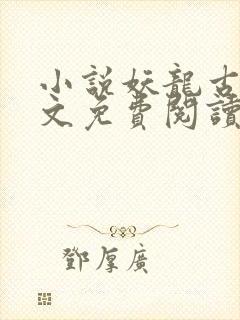 小說妖龍古
文免費閱讀
鄧厚廣